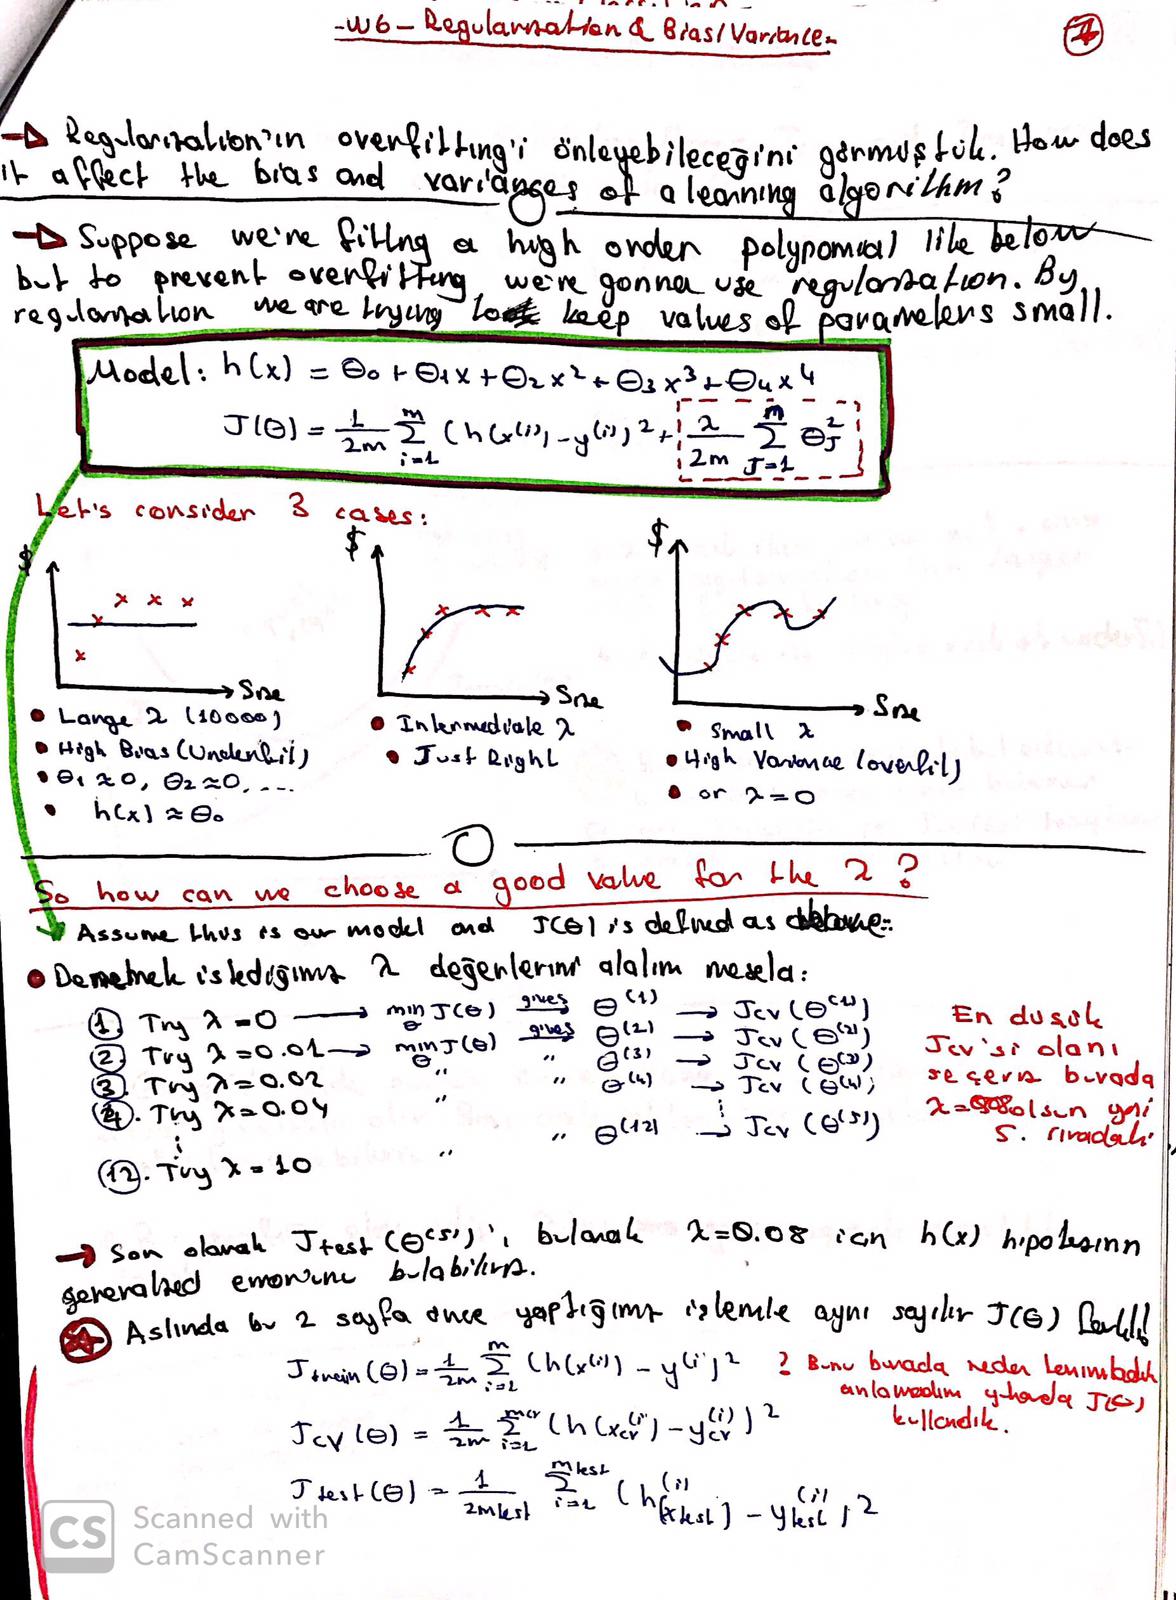 -W6- Regularization & Bias/Variance-
1
→ Regularization'ın overfitting'i önleyebileceğini görmüştük. How does
it affect the bias and variances of a learning algorithm?
→ Suppose we're fitting a high order polynomial like below
but to prevent overfitting we're gonna use regularization. By
regularization we are trying to keep values of parameters small.
Model: h(x) = θ₀ + θ₁x + θ₂x² + θ₃x³ + θ₄x⁴
J(θ) = 1/2m Σ_{i=1}^{m} (h(x⁽ⁱ⁾) - y⁽ⁱ⁾)² + λ/2m Σ_{J=1}^{m} θ_J²
Let's consider 3 cases:
$ $ $
Size Size Size
• Large λ (10000)
• High Bias (Underfit)
• θ₁ ≈ 0, θ₂ ≈ 0, ...
• h(x) ≈ θ₀
• Intermediate λ
• Just Right
• Small λ
• High Variance (overfit)
• or λ = 0
So how can we choose a good value for the λ?
Assume this is our model and J(θ) is defined as above:
• Denemek istediğimiz λ değerlerini alalım mesela:
1. Try λ = 0 → min_θ J(θ) gives→ θ⁽¹⁾ → Jcv(θ⁽¹⁾)
2. Try λ = 0.01 → min_θ J(θ) gives→ θ⁽²⁾ → Jcv(θ⁽²⁾)
3. Try λ = 0.02 " " θ⁽³⁾ → Jcv(θ⁽³⁾)
4. Try λ = 0.04 " " θ⁽⁴⁾ → Jcv(θ⁽⁴⁾)
⋮ ⋮
12. Try λ = 10 " " θ⁽¹²⁾ → Jcv(θ⁽⁵⁾)
En düşük
Jcv'si olanı
seçeriz burada
λ=0.08 olsun yani
5. sıradaki
→ Son olarak Jtest(θ⁽⁵⁾)'i bularak λ=0.08 için h(x) hipotezinin
generalized errorunu bulabiliriz.
Aslında bu 2 sayfa önce yaptığımız işlemle aynı sayılır J(θ) farklı!
Jtrain(θ) = 1/2m Σ_{i=1}^{m} (h(x⁽ⁱ⁾) - y⁽ⁱ⁾)²
? Bunu burada neden tanımladık
anlamadım yukarda J(θ)
kullandık.
Jcv(θ) = 1/2m Σ_{i=1}^{mcv} (h(xcv⁽ⁱ⁾) - ycv⁽ⁱ⁾)²
Jtest(θ) = 1/2mtest Σ_{i=1}^{mtest} (h(xtest⁽ⁱ⁾) - ytest⁽ⁱ⁾)²
CS
Scanned with
CamScanner